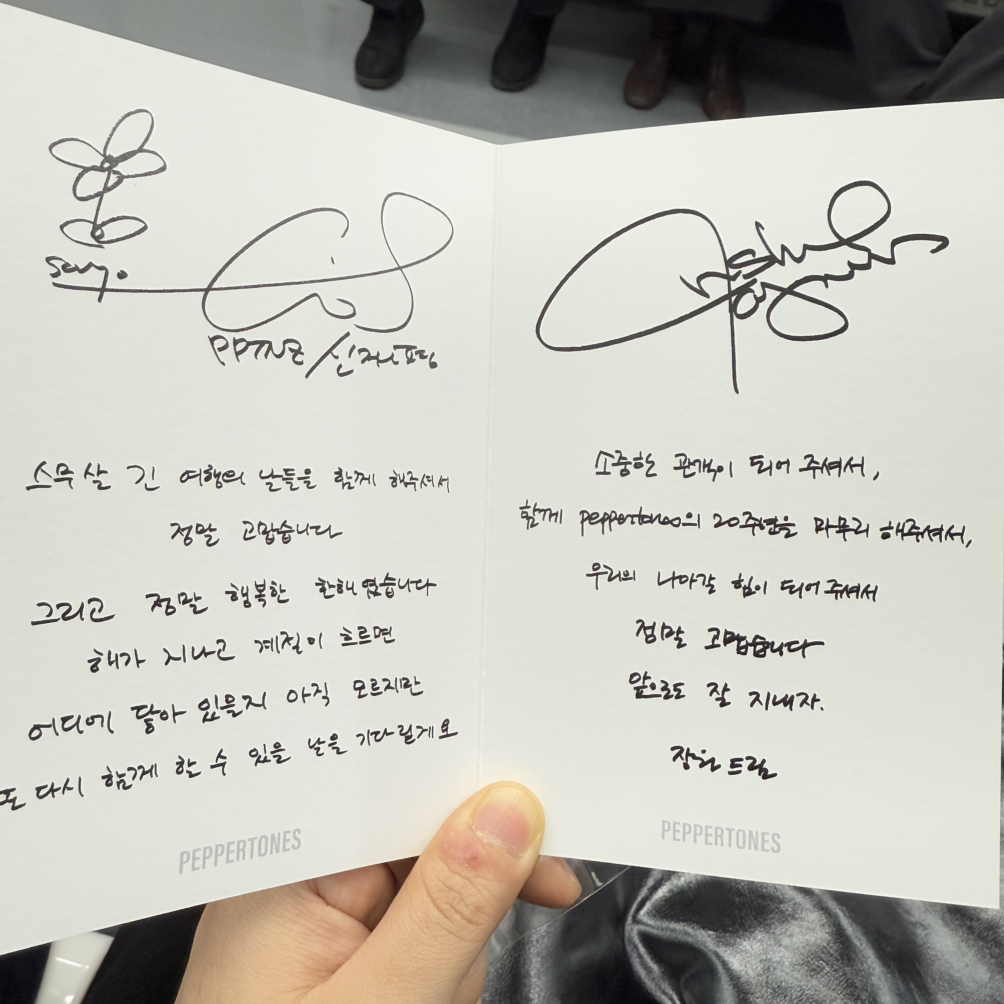 sayo.
PPTNZ/신재평
스무살 긴 여행의 날들을 함께 해주셔서
정말 고맙습니다
그리고 정말 행복한 한해였습니다
해가 지나고 계절이 흐르면
어디에 닿아 있을지 아직 모르지만
또 다시 함께 할 수 있을 날을 기다릴게요
PEPPERTONES
소중한 관객이 되어 주셔서,
함께 peppertones의 20주년을 마무리 해주셔서,
우리의 나아갈 힘이 되어 주셔서
정말 고맙습니다
앞으로도 잘 지내자.
장원 드림
PEPPERTONES